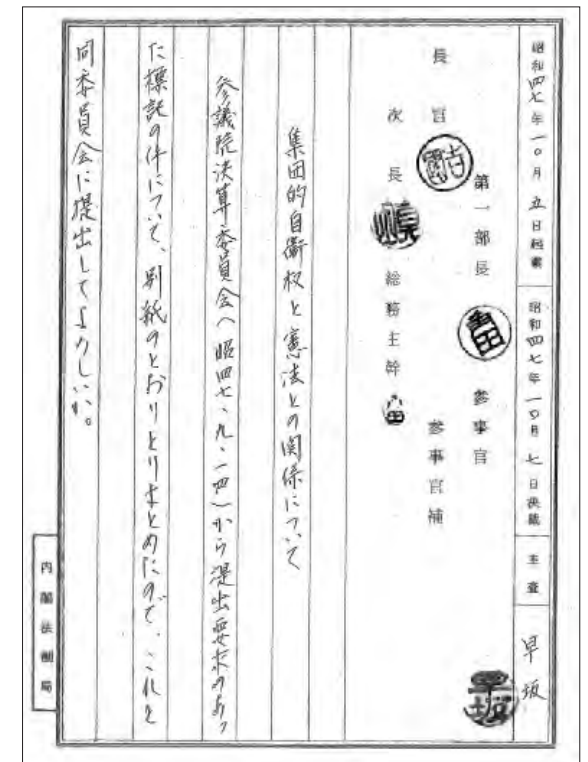 昭和四七年一〇月五日起案
昭和四七年一〇月七日決裁
主査
早坂
第一部長
参事官
長官
参事官補
次長
総務主幹
集団的自衛权と憲法との関係について
参議院決算委員会(昭四七、九、一四)から提出要求のあっ
た標記の件について、別紙のとおりとりまとめたので、これを
同委員会に提出してよろしいか。
内閣法制局
吉國
角田
早坂